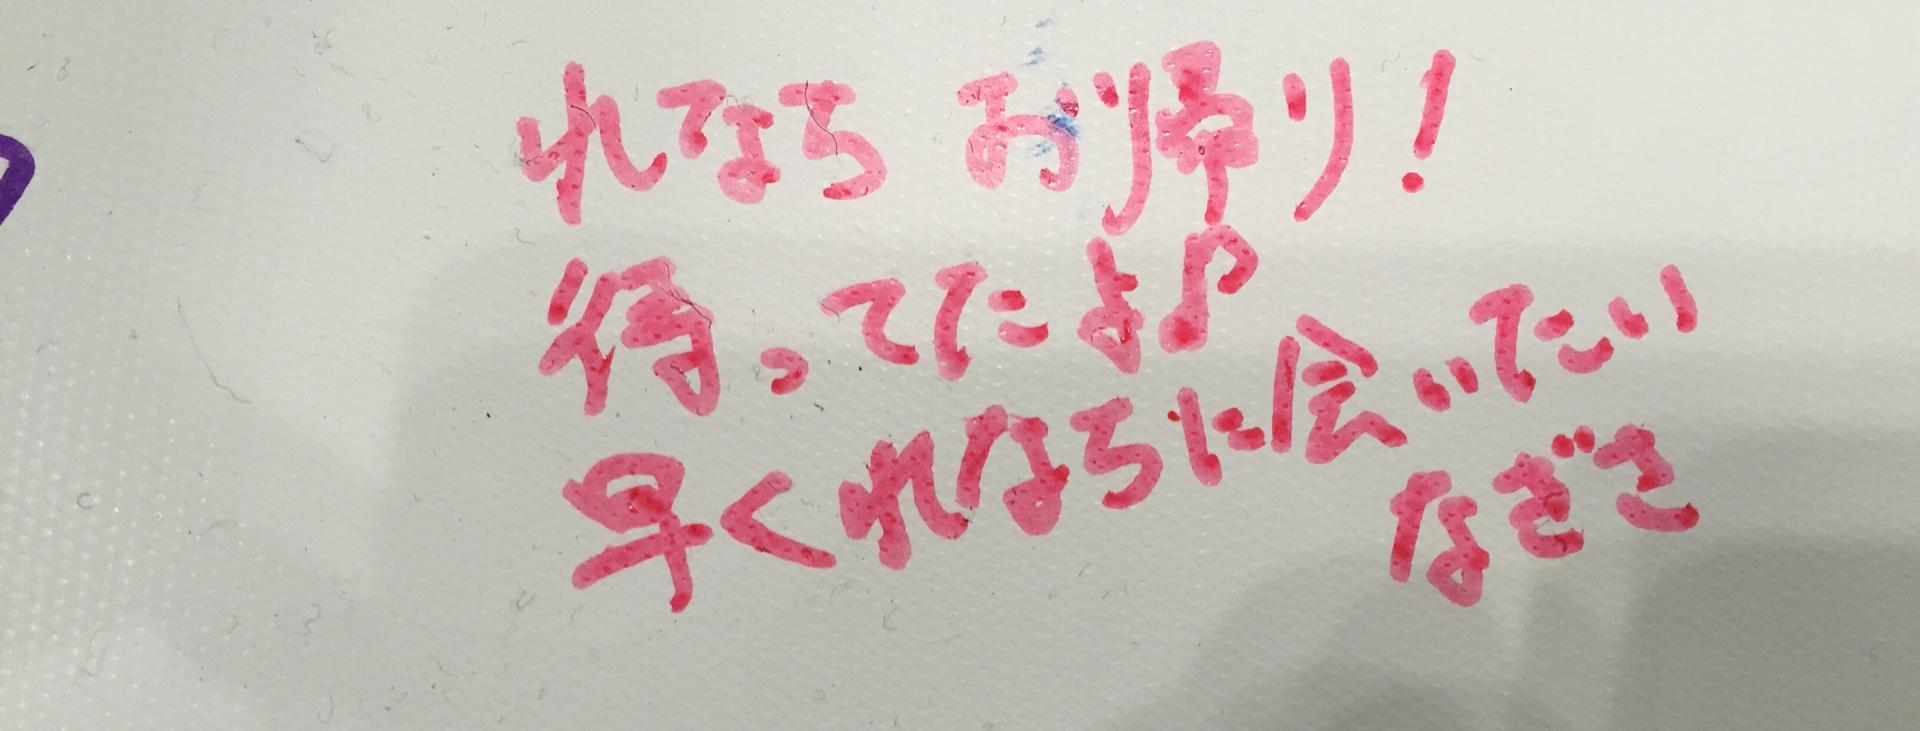 れなち お帰り!
待ってたよ♪
早くれなちに会いたい
なぎさ